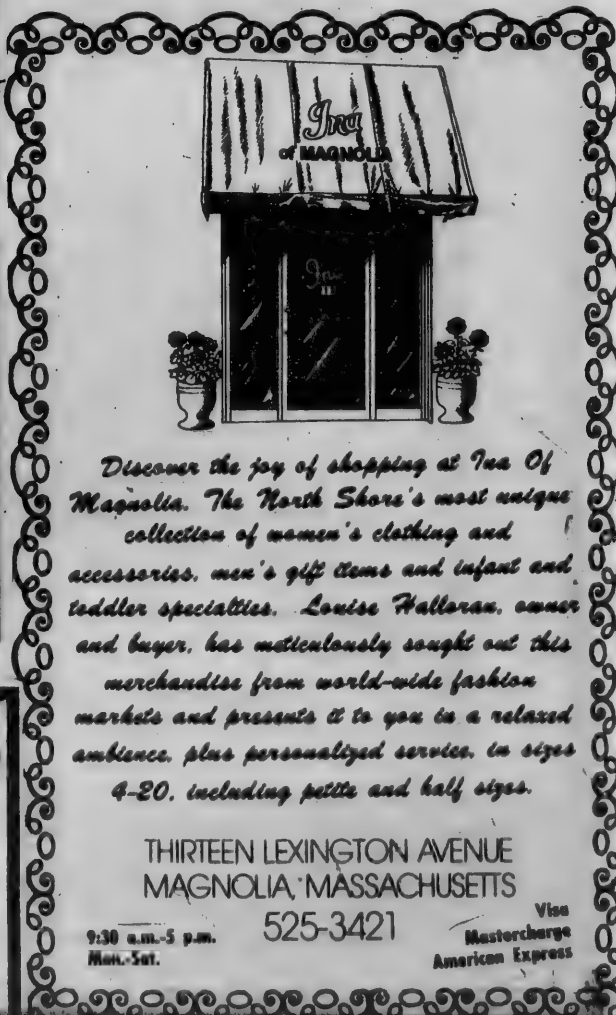 Ina
of MAGNOLIA
Ina
Discover the joy of shopping at Ina Of
Magnolia. The North Shore's most unique
collection of women's clothing and
accessories, men's gift items and infant and
toddler specialties. Louise Halloran, owner
and buyer, has meticulously sought out this
merchandise from world-wide fashion
markets and presents it to you in a relaxed
ambience, plus personalized service, in sizes
4-20, including petite and half sizes.
THIRTEEN LEXINGTON AVENUE
MAGNOLIA, MASSACHUSETTS
525-3421
9:30 a.m.-5 p.m.
Mon.-Sat.
Visa
Mastercharge
American Express